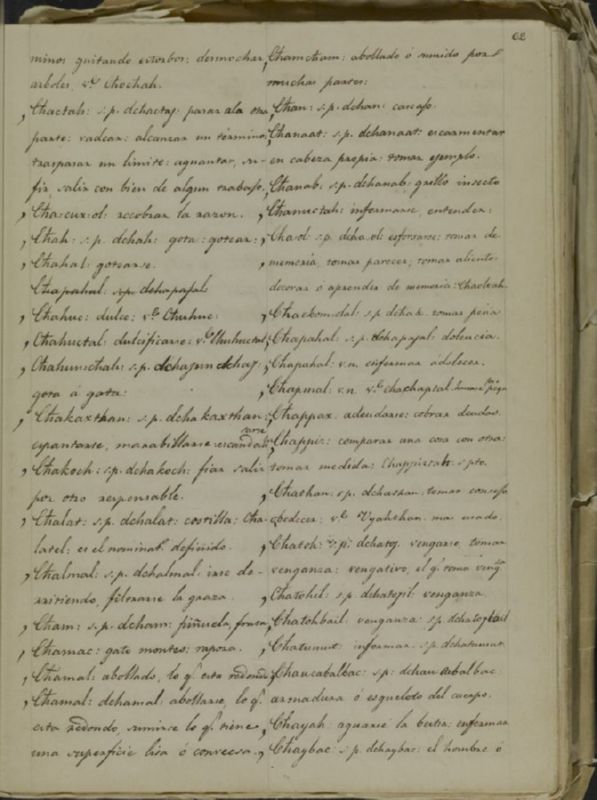 62
minos quitando estorbos: desmochar
arboles, vᵉ Chochah.
Chactah: s.p. dchactaj: parar ala otra
parte: vadear: alcanzar un término:
traspasar un limite: aguantar, su-
fir salir con bien de algun trabajo.
Chacux-ol: recobrar la razon.
Chah: s.p. dchah: gota: gotear:
Chahal: gotearse.
Chapahal: s.p. dchapajal
Chahuc: dulce: vᵉ Chuhuc
Chahuctal: dulcificarse: vᵉ
Chahunchah: s.p. dchajun dchaj:
gota á gota:
Chakaxthan: s.p. dchakaxthan:
espantarse, marabillarse escandali
zarse
Chakoch: s.p. dchakoch: fiar salir
por otro responsable.
Chalat: s.p. dchalat: costilla: Cha-
latel: es el nominatᵒ definido.
Chalmal: s.p. dchalmal: irse de-
rritiendo, filtrarse la graza.
Cham: s.p. dcham: piñuela, fruta
Chamac: gato montes: raposa.
Chamal: abollado, lo qᵉ esta redondo
Chamal: dchamal: abollarse, lo qᵉ
esta redondo, sumirse lo qᵉ tiene
una superficie lisa ó convecsa.
Chamcham: abollado ó sumido por
muchas partes:
Chan: s.p. dchan: cascajo.
Chanaat: s.p. dchanaat: escarmentar
en cabeza propia: tomar ejemplo.
Chanab. s.p. dchanab: grillo insecto
Chanuctah: informarse, entender:
Chaol: s.p. dchaol: esforzarse: tomar de
memoria, tomar parecer; tomar aliento:
decorar ó aprender de memoria: Chaoltah.
s.p. dchak. tomar peña
Chapahal: s.p. dchapajal dolencia.
Chapahal: v.n. enfermar ádolecer.
Chapmal: v.n. vᵉ chachapsal
Chappax: adeudarse: cobrar deudas.
Chappiz: comparar una cosa con otra:
tomar medida: Chappiztah: s.pto.
Chathan: s.p. dchathan: tomar consejo
obedecer: vᵉ Uyahthan.
Chatoh: s.p. dchatoj vengarse, tomar
venganza: vengativo, el qᵉ toma vengᵃ
Chatohil: s.p. dchatojil venganza.
Chatohbail venganza: s.p. dchatojbail
Chatumut: informar. s.p. dchatumut
Chaucabalbac: s.p: dchaucabalbac:
armadura ó esqueleto del cuerpo.
Chayah: aguarse la bestia: enfermar
Chaybac: s.p. dchaybac: el hombre ó